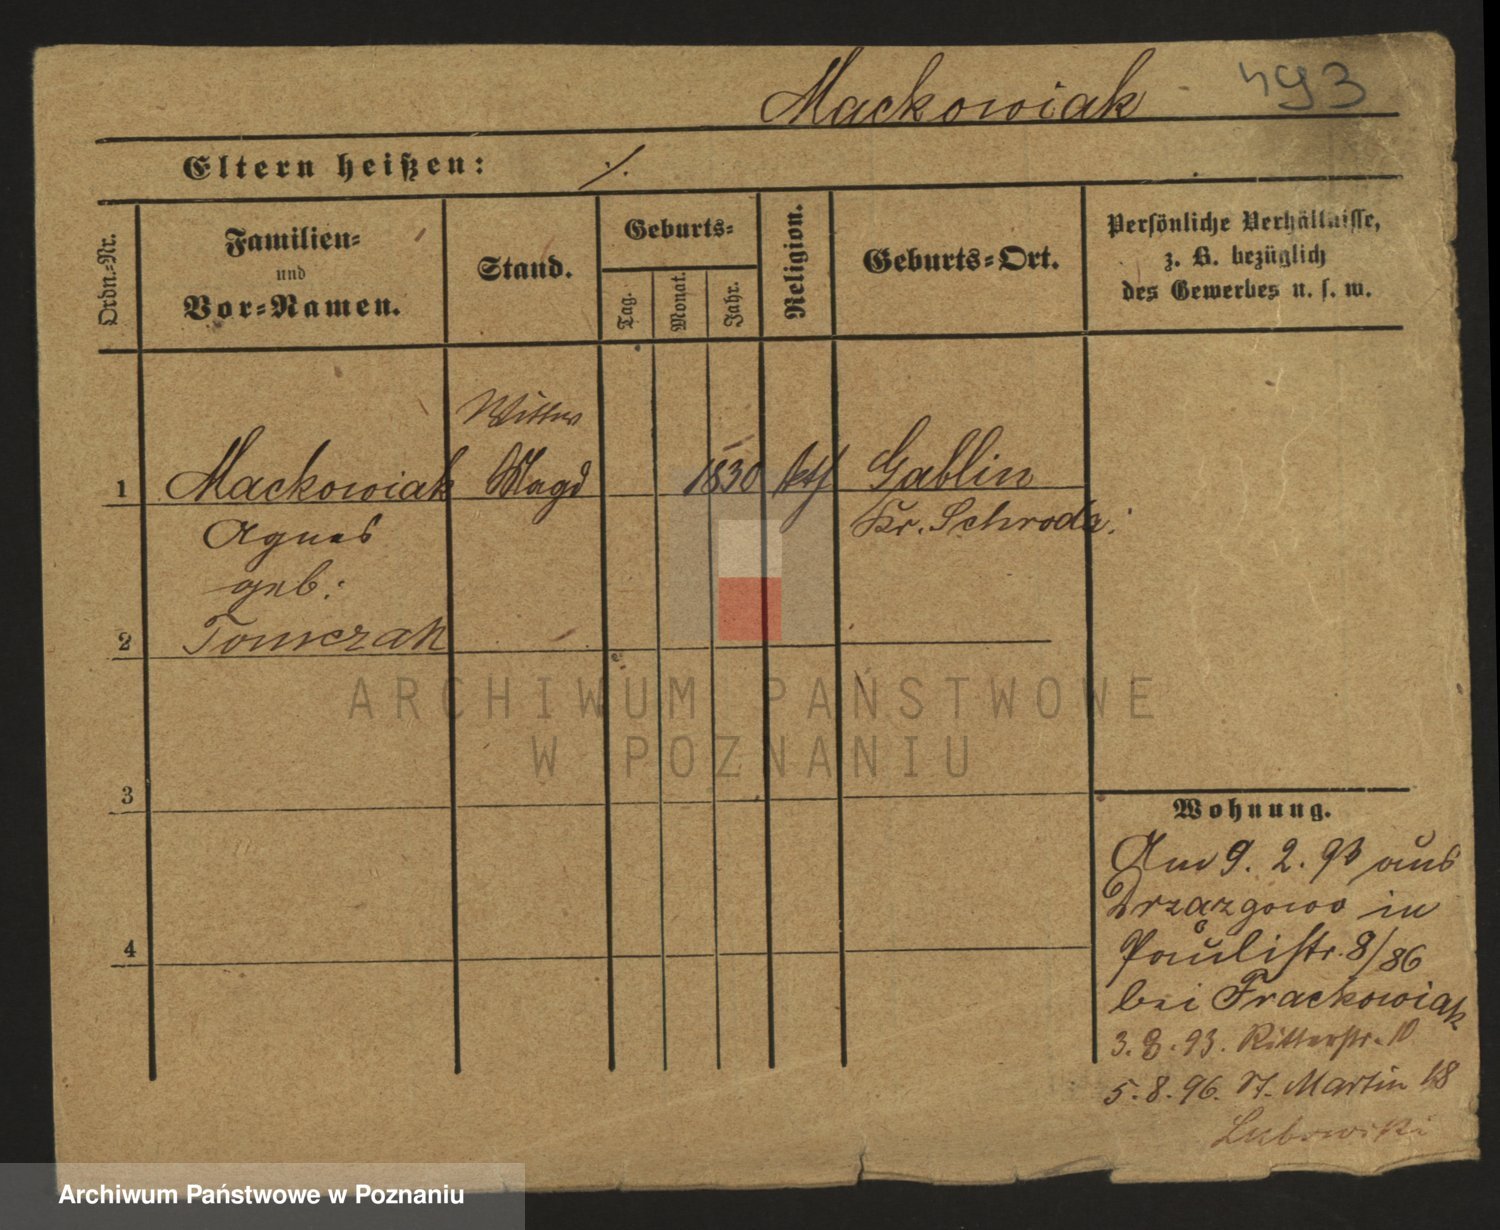 Mackowiak
493
Eltern heißen: ./.
Ordn.-Nr.
Familien-
und
Vor-Namen.
Stand.
Geburts-
Tag.
Monat.
Jahr.
Religion.
Geburts-Ort.
Persönliche Verhältnisse,
z. B. bezüglich
des Gewerbes u. s. w.
1
Mackowiak
Agnes
geb:
Tomczak
Wittwe
Magd
1830
kth
Gablin
Kr. Schroda.
2
3
4
Wohnung.
Am 9. 2. 93 aus
Drzązgowo in
Paulistr. 8/86
bei Frackowiak
3. 8. 93. Ritterstr. 10
5. 8. 96. St. Martin 18
ARCHIWUM PAŃSTWOWE
W POZNANIU
Archiwum Państwowe w Poznaniu